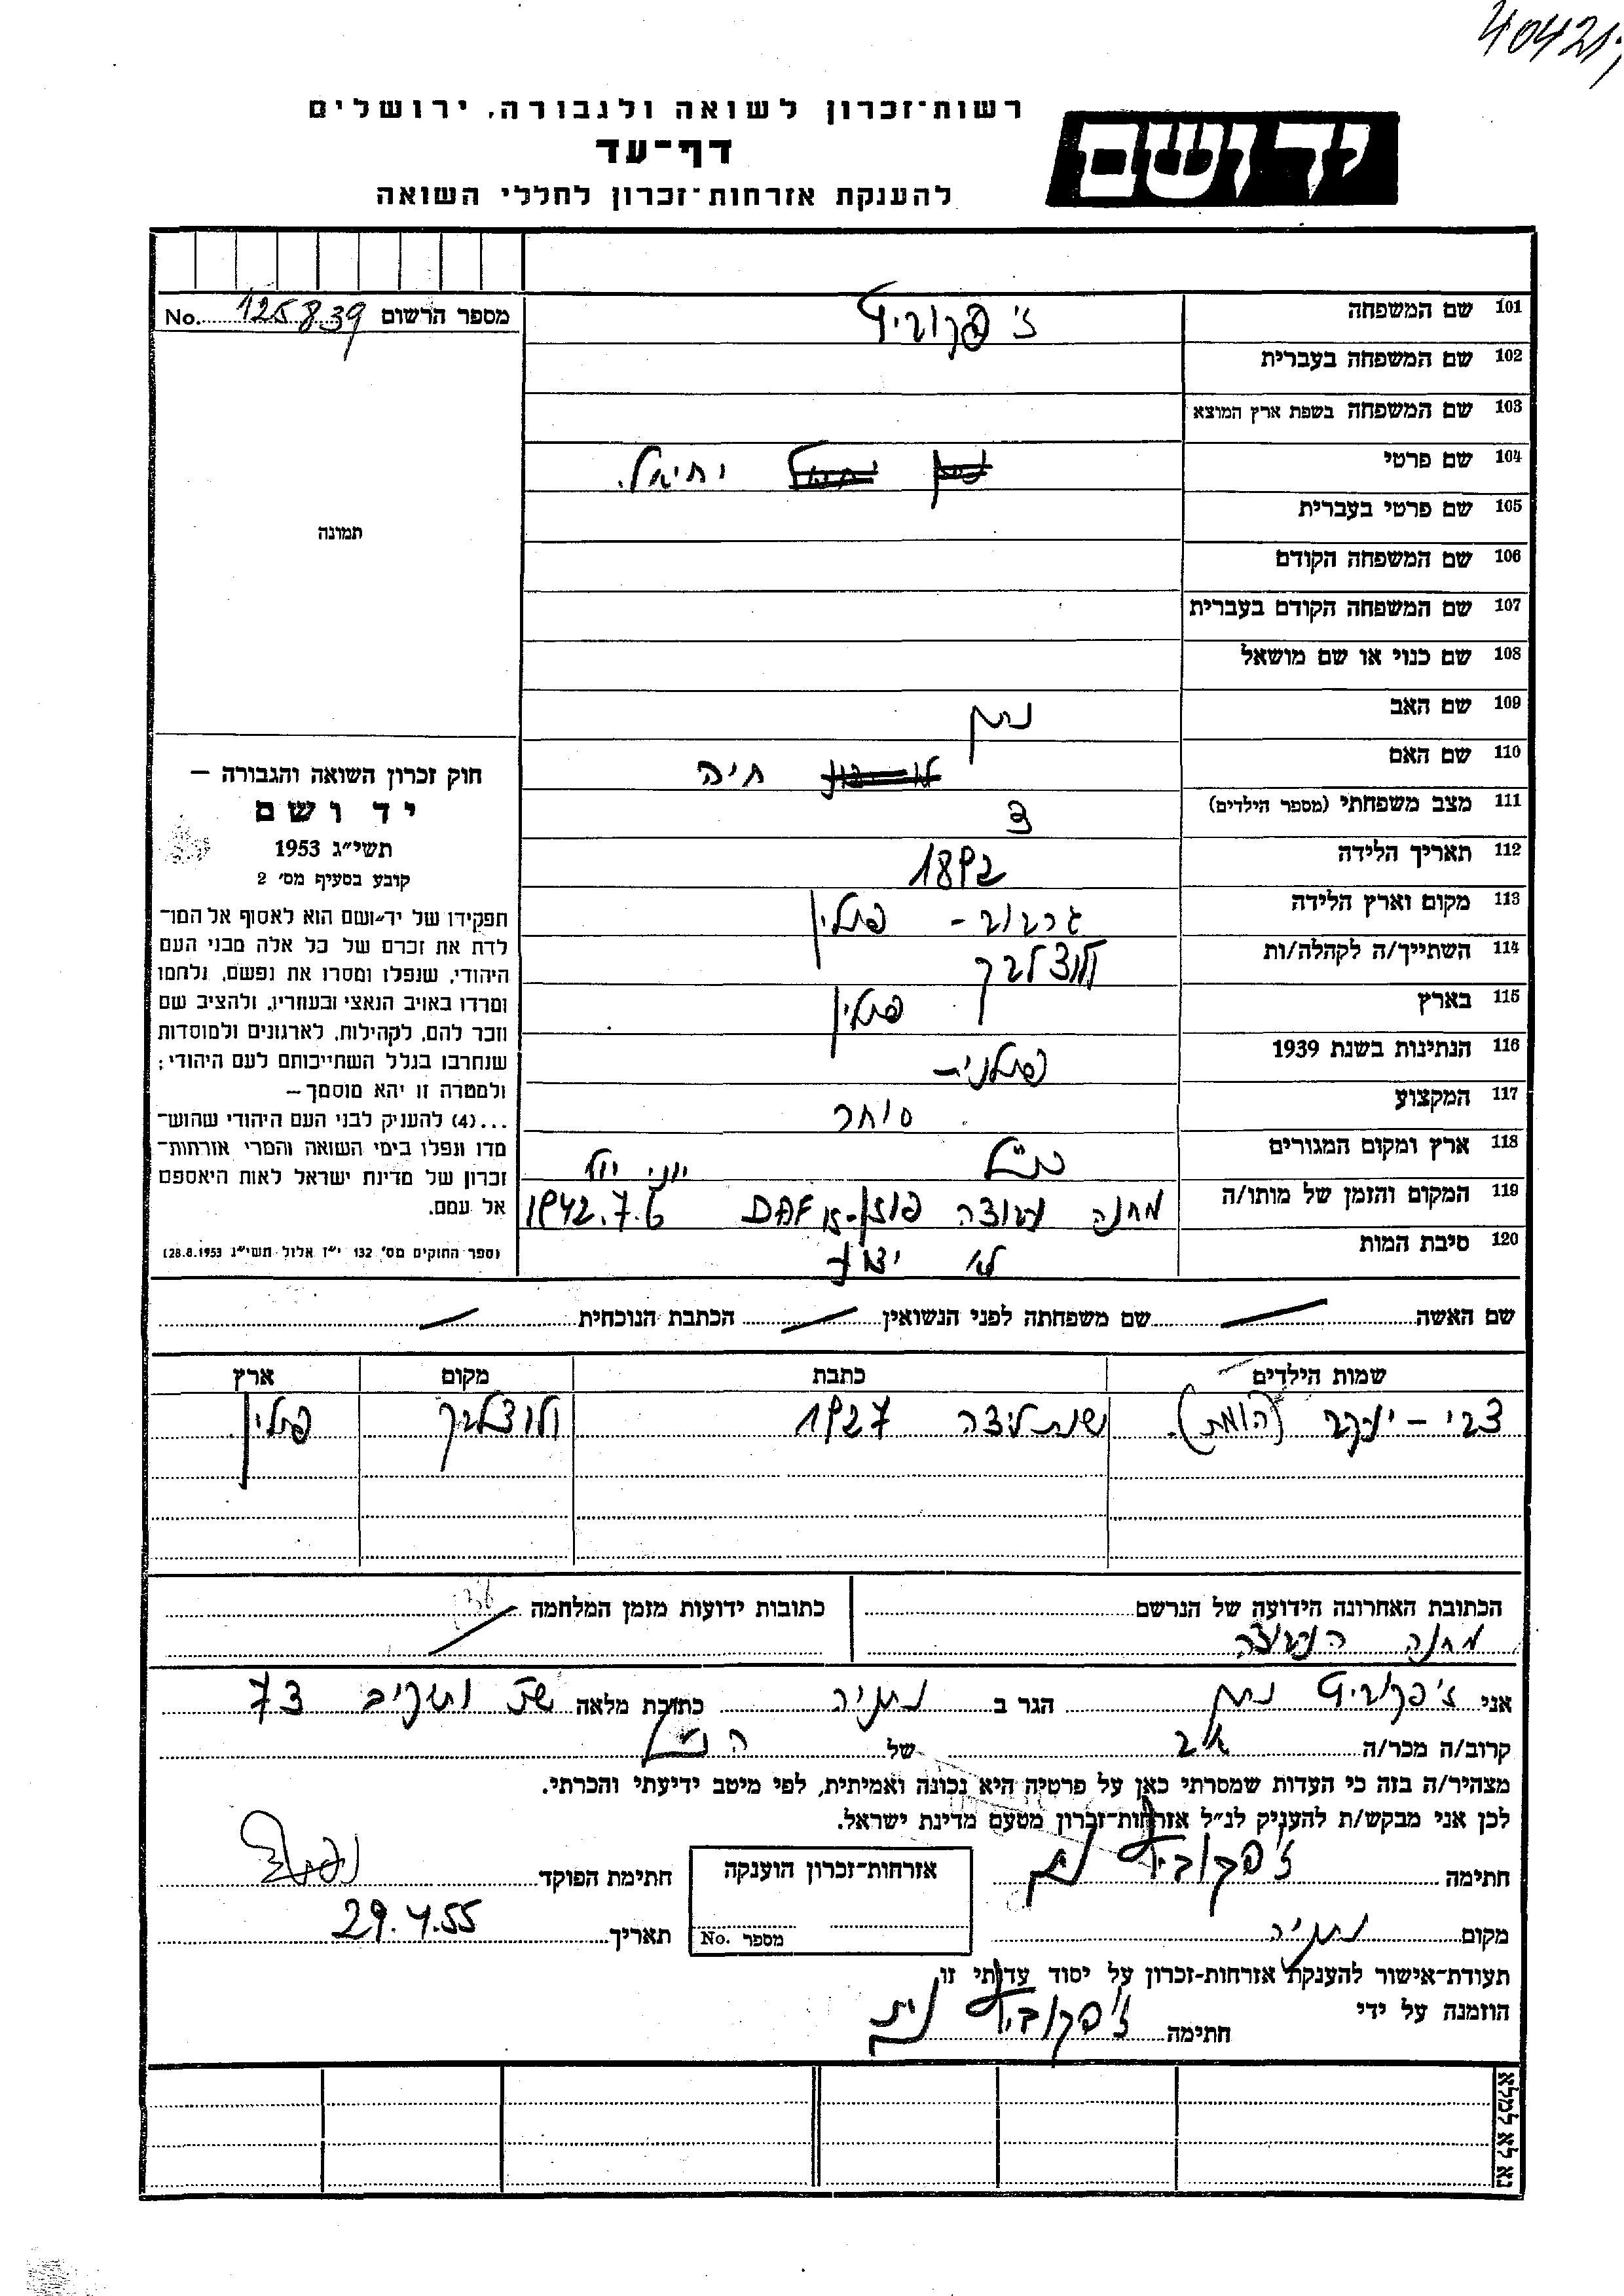 40421
רשות־זכרון לשואה ולגבורה, ירושלים
דף־עד
להענקת אזרחות־זכרון לחללי השואה
ידושם
מספר הרשום No. 125839
101 שם המשפחה ז'
102 שם המשפחה בעברית
103 שם המשפחה בשפת ארץ המוצא
104 שם פרטי יחיאל.
105 שם פרטי בעברית
תמונה
106 שם המשפחה הקודם
107 שם המשפחה הקודם בעברית
108 שם כנוי או שם מושאל
109 שם האב נתן
110 שם האם חיה
111 מצב משפחתי (מספר הילדים) 3
112 תאריך הלידה 1892
113 מקום וארץ הלידה פולין
114 השתייך/ה לקהלה/ות ולוצלבק
115 בארץ פולין
116 הנתינות בשנת 1939 פולנית
117 המקצוע סוחר
118 ארץ ומקום המגורים כנ"ל
119 המקום והזמן של מותו/ה יוני יולי
מחנה פוזן DAF 1942.7.6
120 סיבת המות לא ידוע
חוק זכרון השואה והגבורה —
יד ושם
תשי״ג 1953
קובע בסעיף מס׳ 2
תפקידו של יד־ושם הוא לאסוף אל המו־
לדת את זכרם של כל אלה מבני העם
היהודי, שנפלו ומסרו את נפשם, נלחמו
ומרדו באויב הנאצי ובעוזריו, ולהציב שם
וזכר להם, לקהילות, לארגונים ולמוסדות
שנחרבו בגלל השתייכותם לעם היהודי;
ולמטרה זו יהא מוסמך —
...(4) להעניק לבני העם היהודי שהוש־
מדו ונפלו בימי השואה והמרי אזרחות־
זכרון של מדינת ישראל לאות היאספם
אל עמם.
(ספר החוקים מס׳ 132 י״ז אלול תשי״ג 28.8.1953)
שם האשה שם משפחתה לפני הנשואין הכתבת הנוכחית
שמות הילדים כתבת מקום ארץ
צבי – יעקב (הומת). שנת לידה 1927 ולוצלבק פולין
הכתובת האחרונה הידועה של הנרשם כתובות ידועות מזמן המלחמה
מחנה
אני נתן הגר ב נתניה כתובת מלאה 73
קרוב/ה מכר/ה אב של הנ"ל
מצהיר/ה בזה כי העדות שמסרתי כאן על פרטיה היא נכונה ואמיתית, לפי מיטב ידיעתי והכרתי.
לכן אני מבקש/ת להעניק לנ״ל אזרחות־זכרון מטעם מדינת ישראל.
חתימה נתן אזרחות־זכרון הוענקה חתימת הפוקד
מקום נתניה מספר No. תאריך 29.4.55
תעודת־אישור להענקת אזרחות־זכרון על יסוד עדותי זו
הוזמנה על ידי
חתימה נתן
נא לא למלא